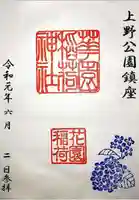 上野公園鎮座
花園稲荷神社
花園稲荷
令和元年 六月 二日参拝